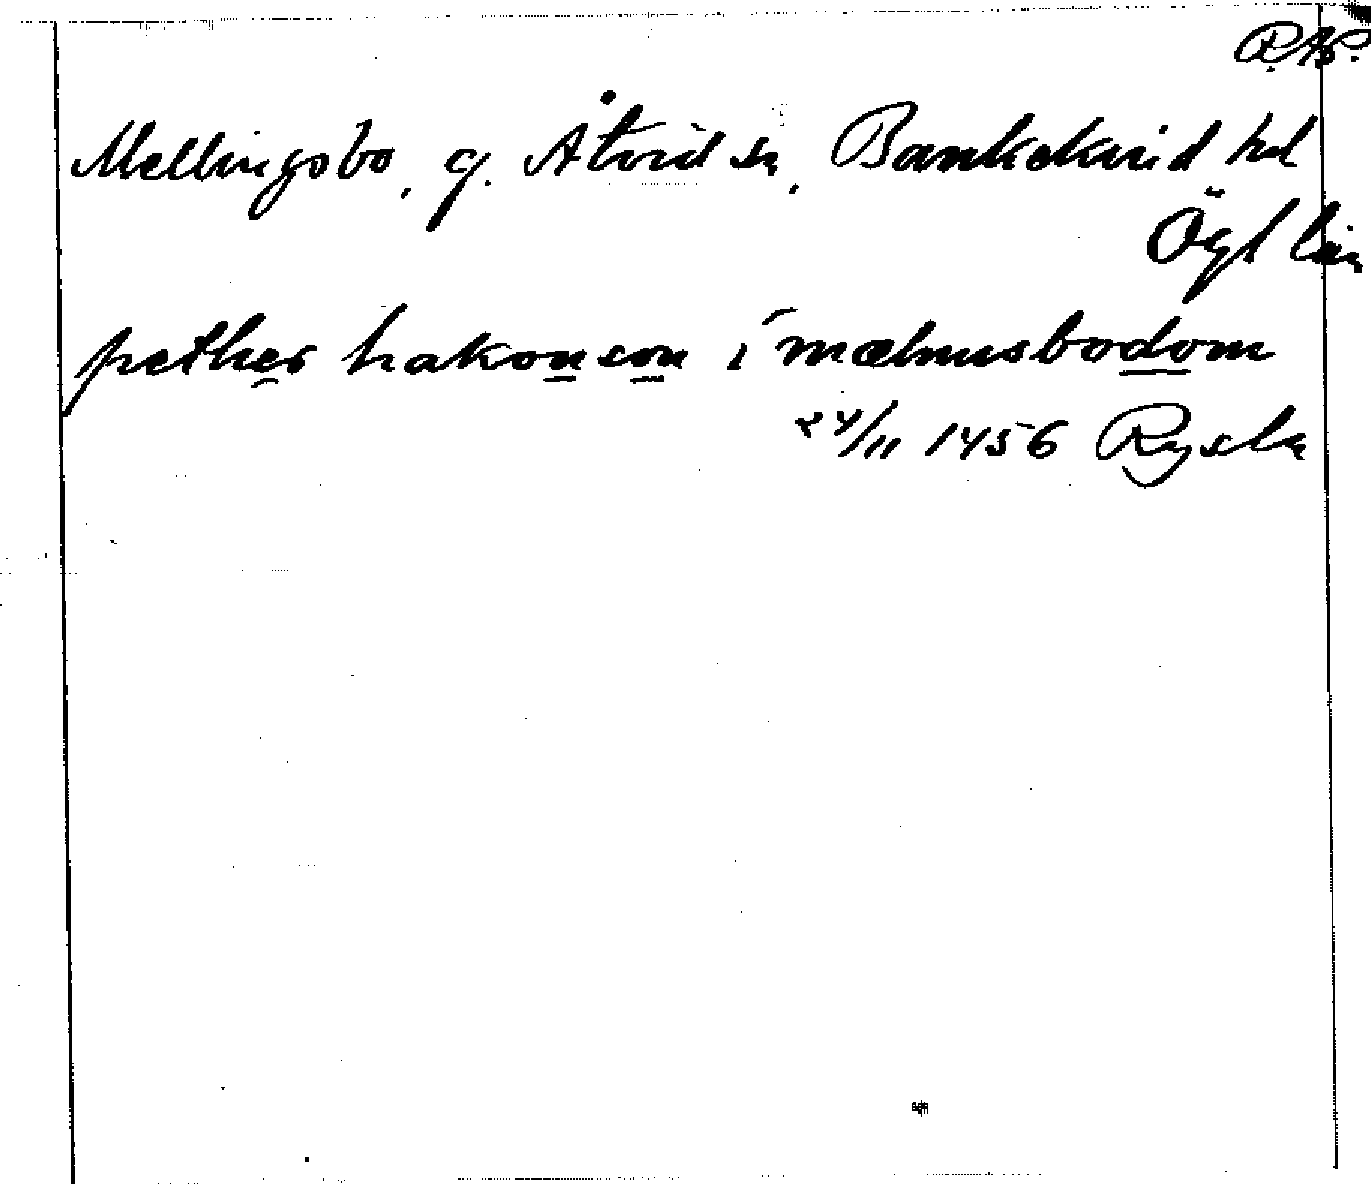 R.Ap.
Mellingsbo, g. Åtvid sn, Bankekind hd
Ögl län
pether hakonson i mælmusbodom
24/11 1456 Rysby